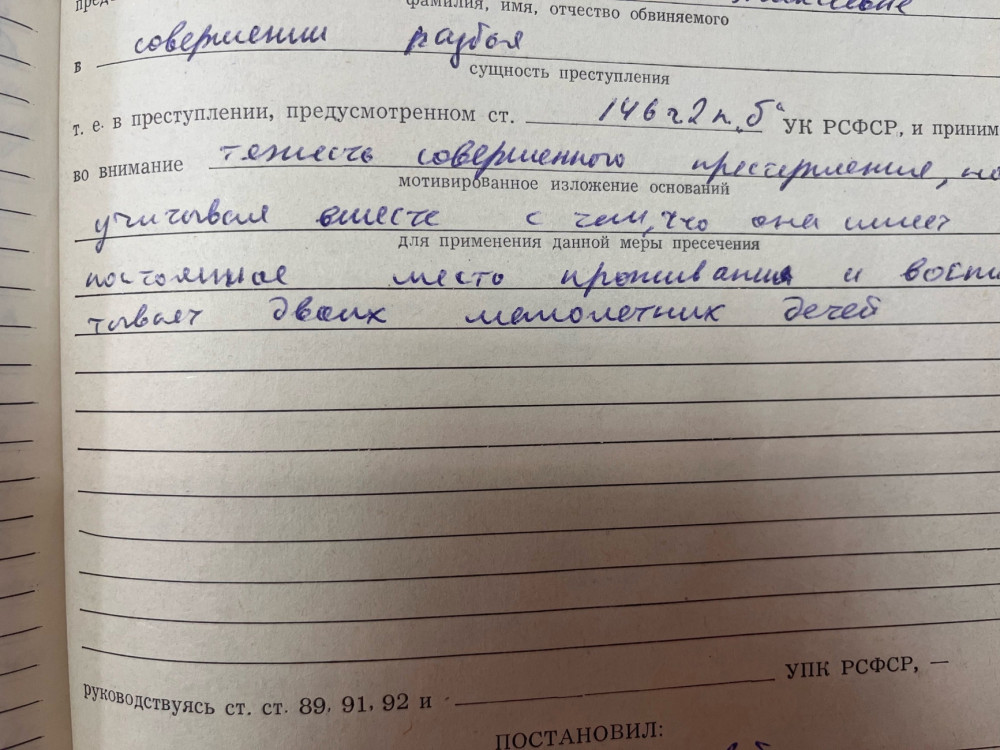 фамилия, имя, отчество обвиняемого
в совершении разбоя
сущность преступления
т. е. в преступлении, предусмотренном ст. 146 ч 2 п. „б“ УК РСФСР, и приним
во внимание тяжесть совершенного преступления, но
мотивированное изложение оснований
учитывая вместе с тем, что она имеет
для применения данной меры пресечения
постоянное место проживания и воспи
тывает двоих малолетних детей
руководствуясь ст. ст. 89, 91, 92 и УПК РСФСР, —
ПОСТАНОВИЛ: